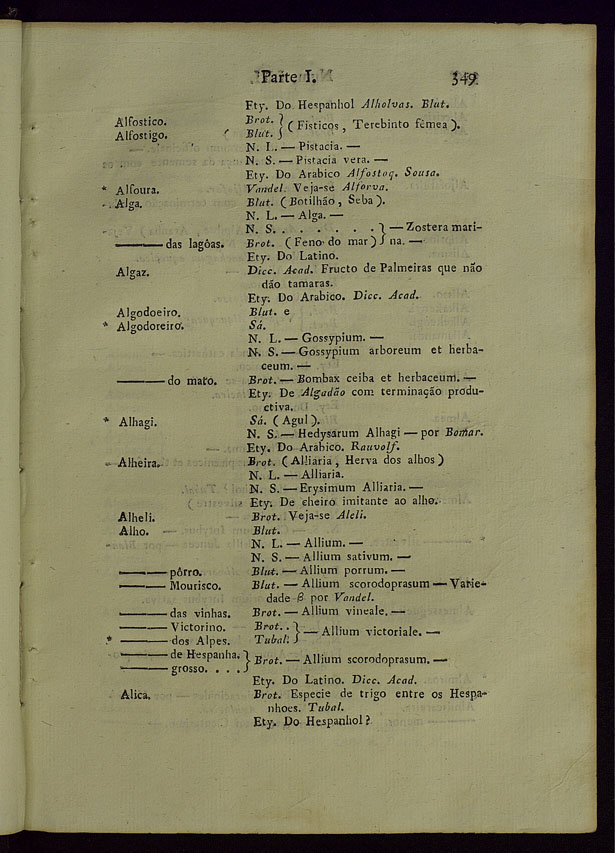 Parte I. 349
Ety. Do Hespanhol Alholvas. Blut.
Alfostico. Brot. } ( Fisticos, Terebinto fêmea ).
Alfostigo. Blut. }
N. L. — Pistacia. —
N. S. — Pistacia vera. —
Ety. Do Arabico Alfostoq. Sousa.
* Alfoura. Vandel. Veja-se Alforva.
Alga. Blut. ( Botilhão, Seba ).
N. L. — Alga. —
N. S. . . . . . . . } — Zostera mari-
——— das lagôas. Brot. ( Feno do mar ) } na. —
Ety. Do Latino.
Algaz. Dicc. Acad. Fructo de Palmeiras que não
dão tamaras.
Ety. Do Arabico. Dicc. Acad.
Algodoeiro. Blut. e
* Algodoreiro. Sá.
N. L. — Gossypium. —
N. S. — Gossypium arboreum et herba-
ceum. —
——— do mato. Brot. — Bombax ceiba et herbaceum. —
Ety. De Algadão com terminação produ-
ctiva.
* Alhagi. Sá. ( Agul ).
N. S. — Hedysarum Alhagi — por Bomar.
Ety. Do Arabico. Rauvolf.
Alheira. Brot. ( Alliaria, Herva dos alhos )
N. L. — Alliaria.
N. S. — Erysimum Alliaria. —
Ety. De cheiro imitante ao alho.
Alheli. Brot. Veja-se Aleli.
Alho. Blut.
N. L. — Allium. —
N. S. — Allium sativum. —
——— pôrro. Blut. — Allium porrum. —
——— Mourisco. Blut. — Allium scorodoprasum — Varie-
dade β por Vandel.
——— das vinhas. Brot. — Allium vineale. —
——— Victorino. Brot. . } — Allium victoriale. —
* ——— dos Alpes. Tubal. }
——— de Hespanha. } Brot. — Allium scorodoprasum. —
——— grosso. . . . }
Ety. Do Latino. Dicc. Acad.
Alica. Brot. Especie de trigo entre os Hespa-
nhoes. Tubal.
Ety. Do Hespanhol ?